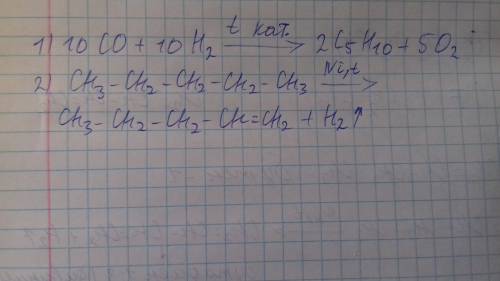 1) 10 CO + 10 H₂ —t кат.→ 2C₅H₁₀ + 5O₂
2) CH₃ – CH₂ – CH₂ – CH₂ – CH₃ —Ni, t→
CH₃ – CH₂ – CH₂ – CH = CH₂ + H₂↑